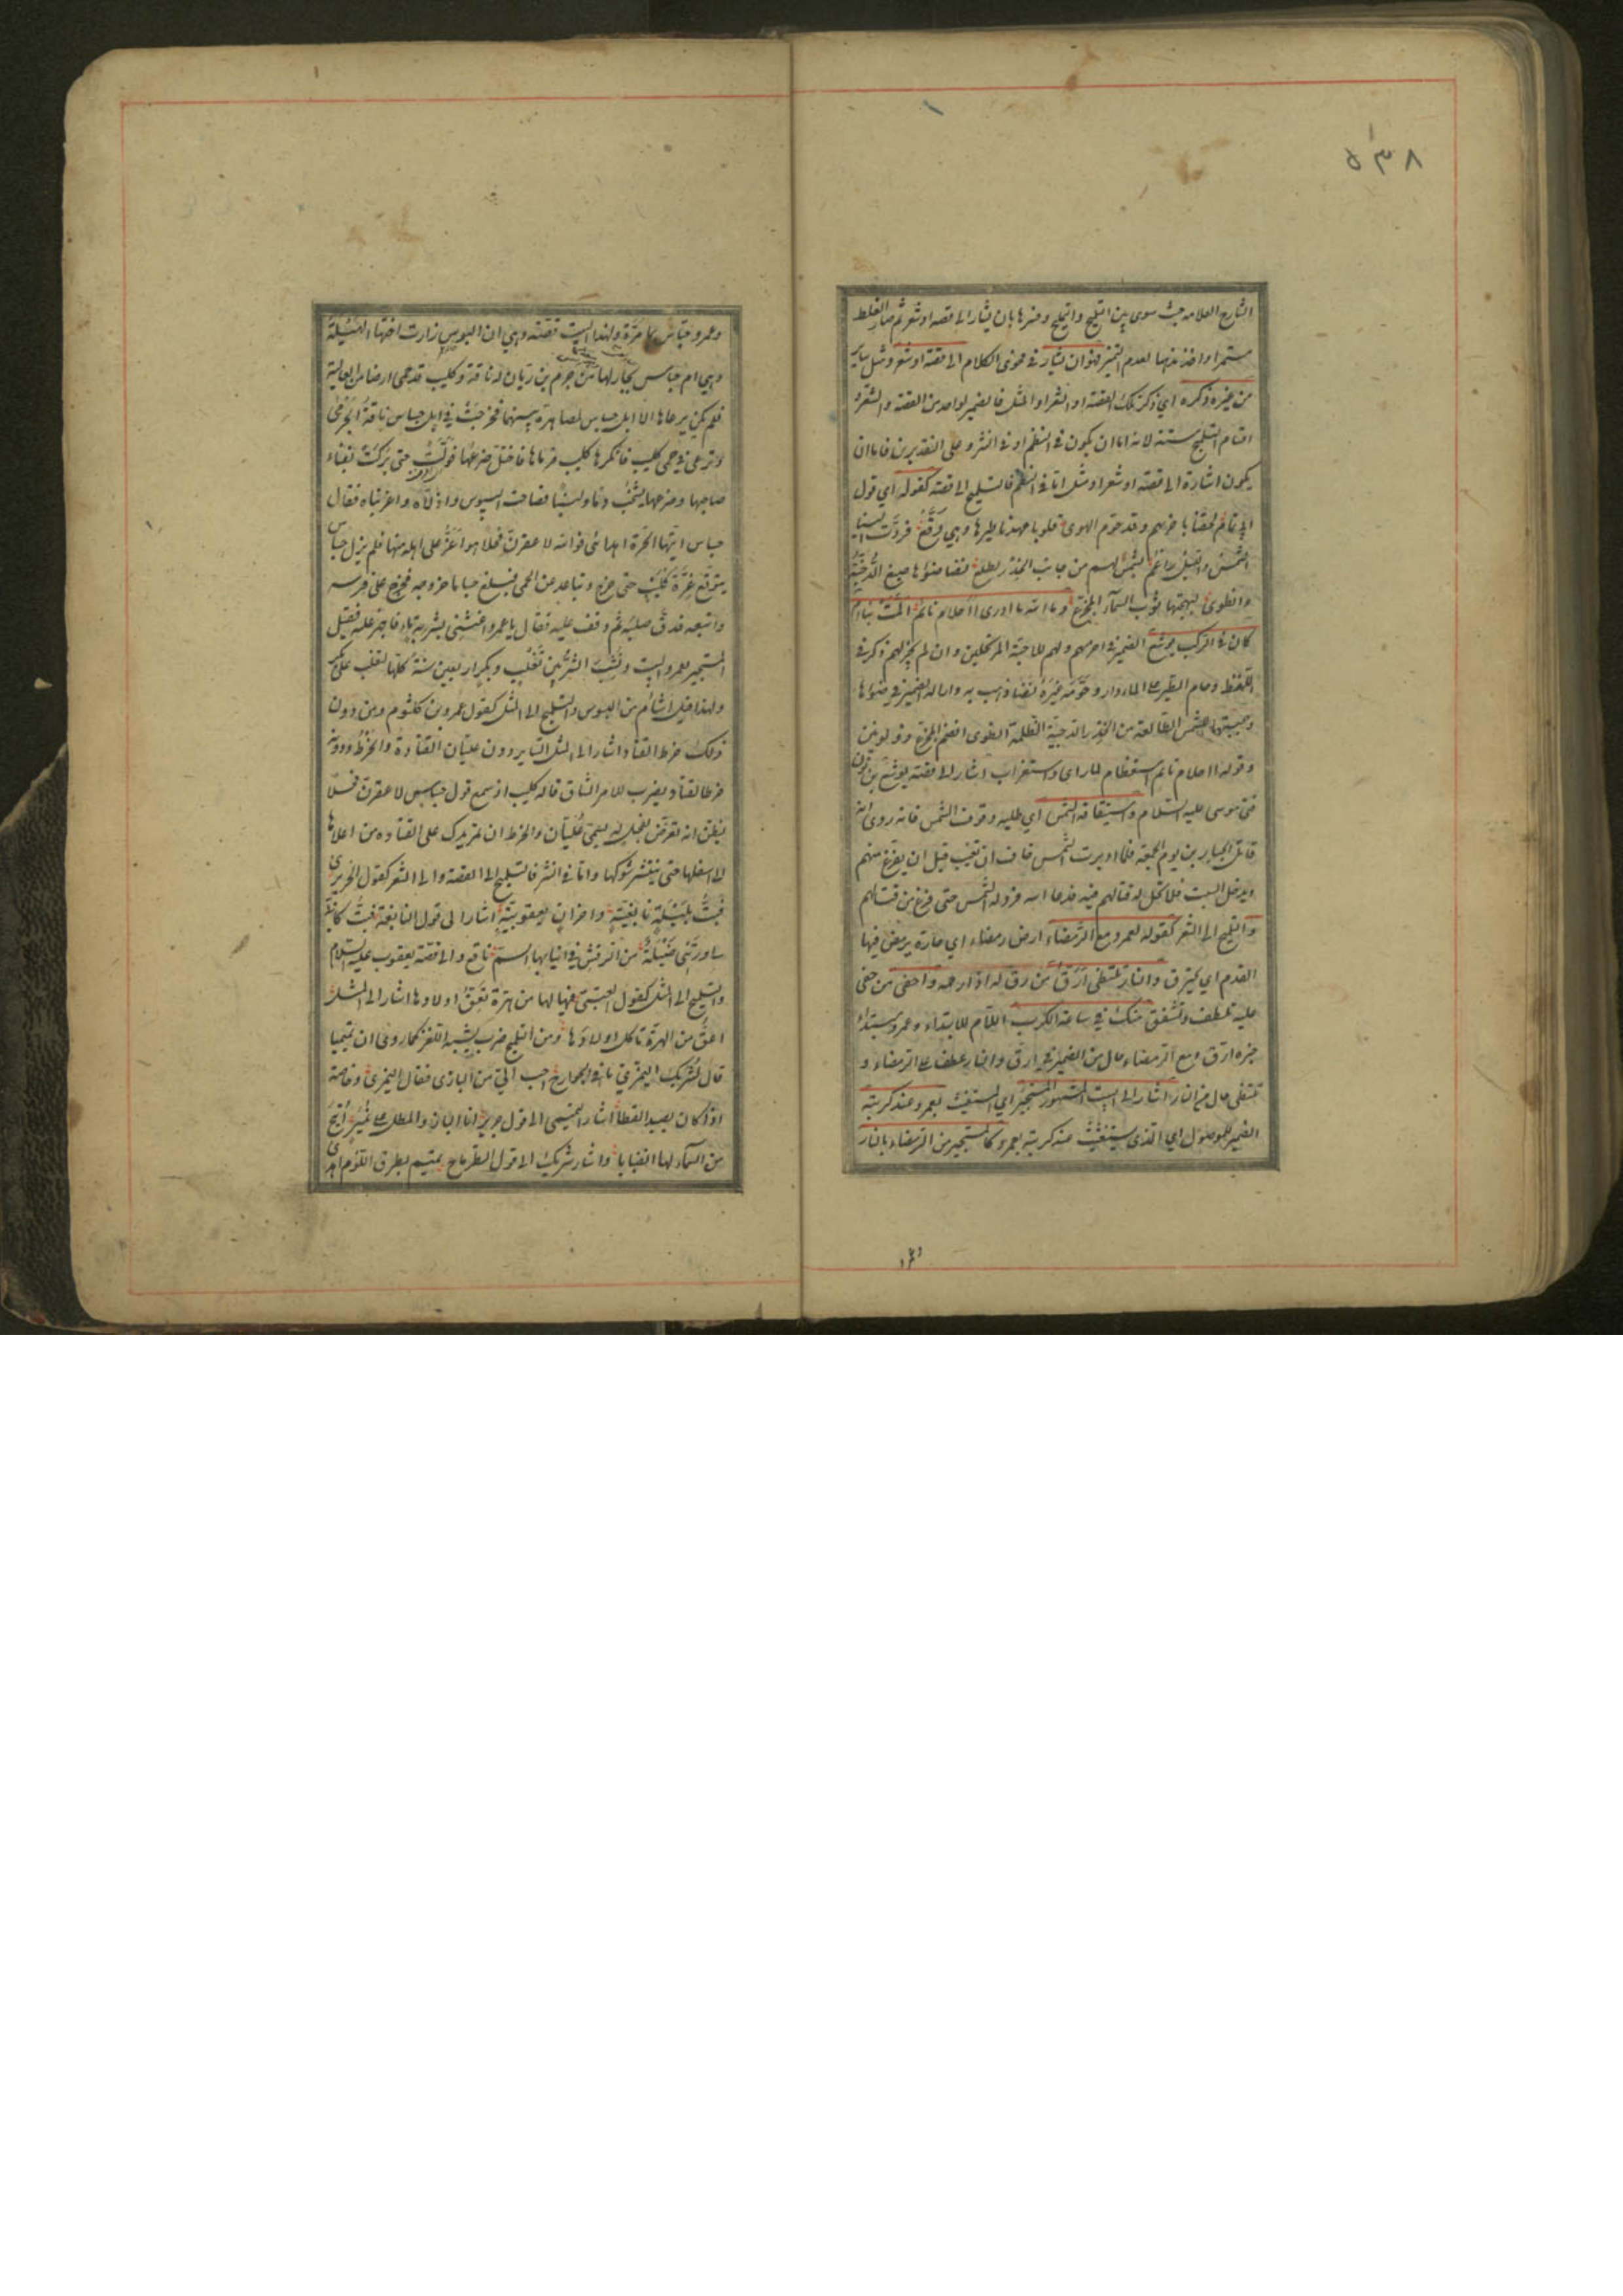 ٥٣٨
الشارح العلامة حيث سوى بين التلميح والتمليح وفسرهما بان يشار الى قصة او شعر ثم صار الغلط
مستمرا واخذ مذهبا لعدم التميز فهو ان يشار في فحوى الكلام الى قصة او شعر او مثل سائر
من غير ذكره اي ذكر تلك القصة او الشعر او المثل فالضمير لواحد من القصة والشعر و
اقسام التلميح ستة لانه اما ان يكون في النظم او في النثر وعلى التقديرين فاما ان
يكون اشارة الى قصة او شعر او مثل اما في النظم فالتلميح الى قصة كقوله اي قول
ابي تمام لحقنا باخريهم وقد حوّم الهوى قلوبا عهدنا طيرها وهي وُقّع فردّت علينا
الشمس والليل راغم بشمس لهم من جانب الخدر تطلع نضا ضوؤها صبغ الدُّجُنّة
وانطوى لبهجتها ثوب السماء المجزع فوالله ما ادرى أاحلام نائم المّت بنا ام
كان في الركب يوشع الضمير في اخريهم ولهم للاحبة المرتحلين وان لم يجر لهم ذكر في
اللفظ وحام الطير على الماء دار وحوّمه غيره نضا ذهب به وازاله الضمير في ضوؤها
وبهجتها للشمس الطالعة من الخدر الدجنة الظلمة انطوى انضم المجزع ذو لونين
وقوله أاحلام نائم استعظام لما راى واستغراب اشار الى قصة يوشع بن نون
فتى موسى عليه السلام واستيقافه الشمس اي طلبه وقوف الشمس فانه روى انه
قاتل الجبارين يوم الجمعة فلما ادبرت الشمس خاف ان تغيب قبل ان يفرغ منهم
ويدخل السبت فلا يحل له قتالهم فيه فدعا الله فرد له الشمس حتى فرغ من قتالهم
والتلميح الى الشعر كقوله لعمرو مع الرمضاء ارض رمضاء اي حارة يرمض فيها
القدم اي يحترق والنار تلتظى ارقّ من رق له اذا رحمه واحفى من حفى
عليه تلطف وتشفق منك في ساعة الكرب اللام للابتداء وعمرو مبتداء
خبره ارق ومع الرمضاء حال من الضمير في ارق والنار عطف على الرمضاء و
تلتظى حال من النار اشار الى البيت المشهور المستجير اي المستغيث بعمرو عند كربته
الضمير للموصول اي الذى يستغيث عند كربته بعمرو كالمستجير من الرمضاء بالنار
وعمرو جساس بن مرة ولهذا البيت قصة وهي ان البسوس زارت اختها الهيلة
وهي ام جساس بجار لها من جرم بن زبان له ناقة وكليب قد حمى ارضا من العالية
فلم يكن يرعاها الا ابل جساس لمصاهرة بينهما فخرجت في ابل جساس ناقة الجرمى
وترعى في حمى كليب فانكرها كليب فرماها فاختل ضرعها فولّت حتى بركت بفناء
صاحبها وضرعها يشخب دما ولبنا فصاحت البسوس واذلاه واغربتاه فقال
جساس ايتها الحرة اهدائى فوالله لا عقرنّ فحلا هو اعز على اهله منها فلم يزل جساس
يتوقع غرّة كليب حتى خرج وتباعد عن الحمى فبلغ جساسا خروجه فخرج على فرسه
واتبعه فدق صلبه ثم وقف عليه فقال يا عمرو اغثنى بشربة ماء فاجهز عليه فقيل
المستجير بعمرو البيت ونشب الشر بين تغلب وبكر اربعين سنة كلها لتغلب على بكر
ولهذا قيل اشأم من البسوس والتلميح الى المثل كقول عمرو بن كلثوم ومن دون
ذلك خرط القتاد اشار الى المثل السائر دون عليان القتادة والخرط ودونه
خرط القتاد يضرب للامر الشاق قاله كليب اذ سمع قول جساس لا عقرن فحلا
يظن انه تعرض لفحل له يسمى عُليّان والخرط ان تمر يدك على القتادة من اعلاها
الى اسفلها حتى ينتثر شوكها واما في النثر فالتلميح الى القصة والى الشعر كقول الحريرى
فبتُّ بليلة نابغية واحزان يعقوبية اشار الى قول النابغة فبتُّ كانى
ساورتنى ضئيلة من الرقش في انيابها السم ناقع والى قصة يعقوب عليه السلام
والتلميح الى المثل كقول العتبى فيا لها من هرة تعق اولادها اشار الى المثل
اعق من الهرة تاكل اولادها ومن التلميح ضرب يشبه اللغز كما روى ان تميميا
قال لشريك النميرى ما في الجوارح احب الي من البازى فقال النميرى وخاصة
اذا كان يصيد القطا اشار التميمى الى قول جرير انا البازى المطل على نمير اتيح
من السماء لها انصبابا واشار شريك الى قول الطرماح تميم بطرق اللؤم اهدى